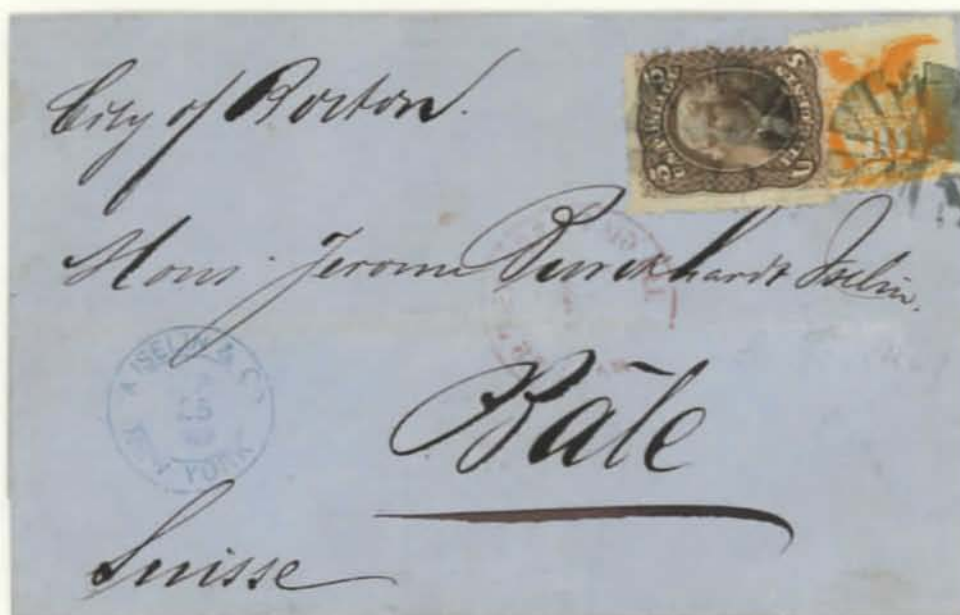 City of Boston.
Mons. Jerome Burckhardt Iselin.
A ISELIN & Co
NEW YORK
Bāle
Suisse